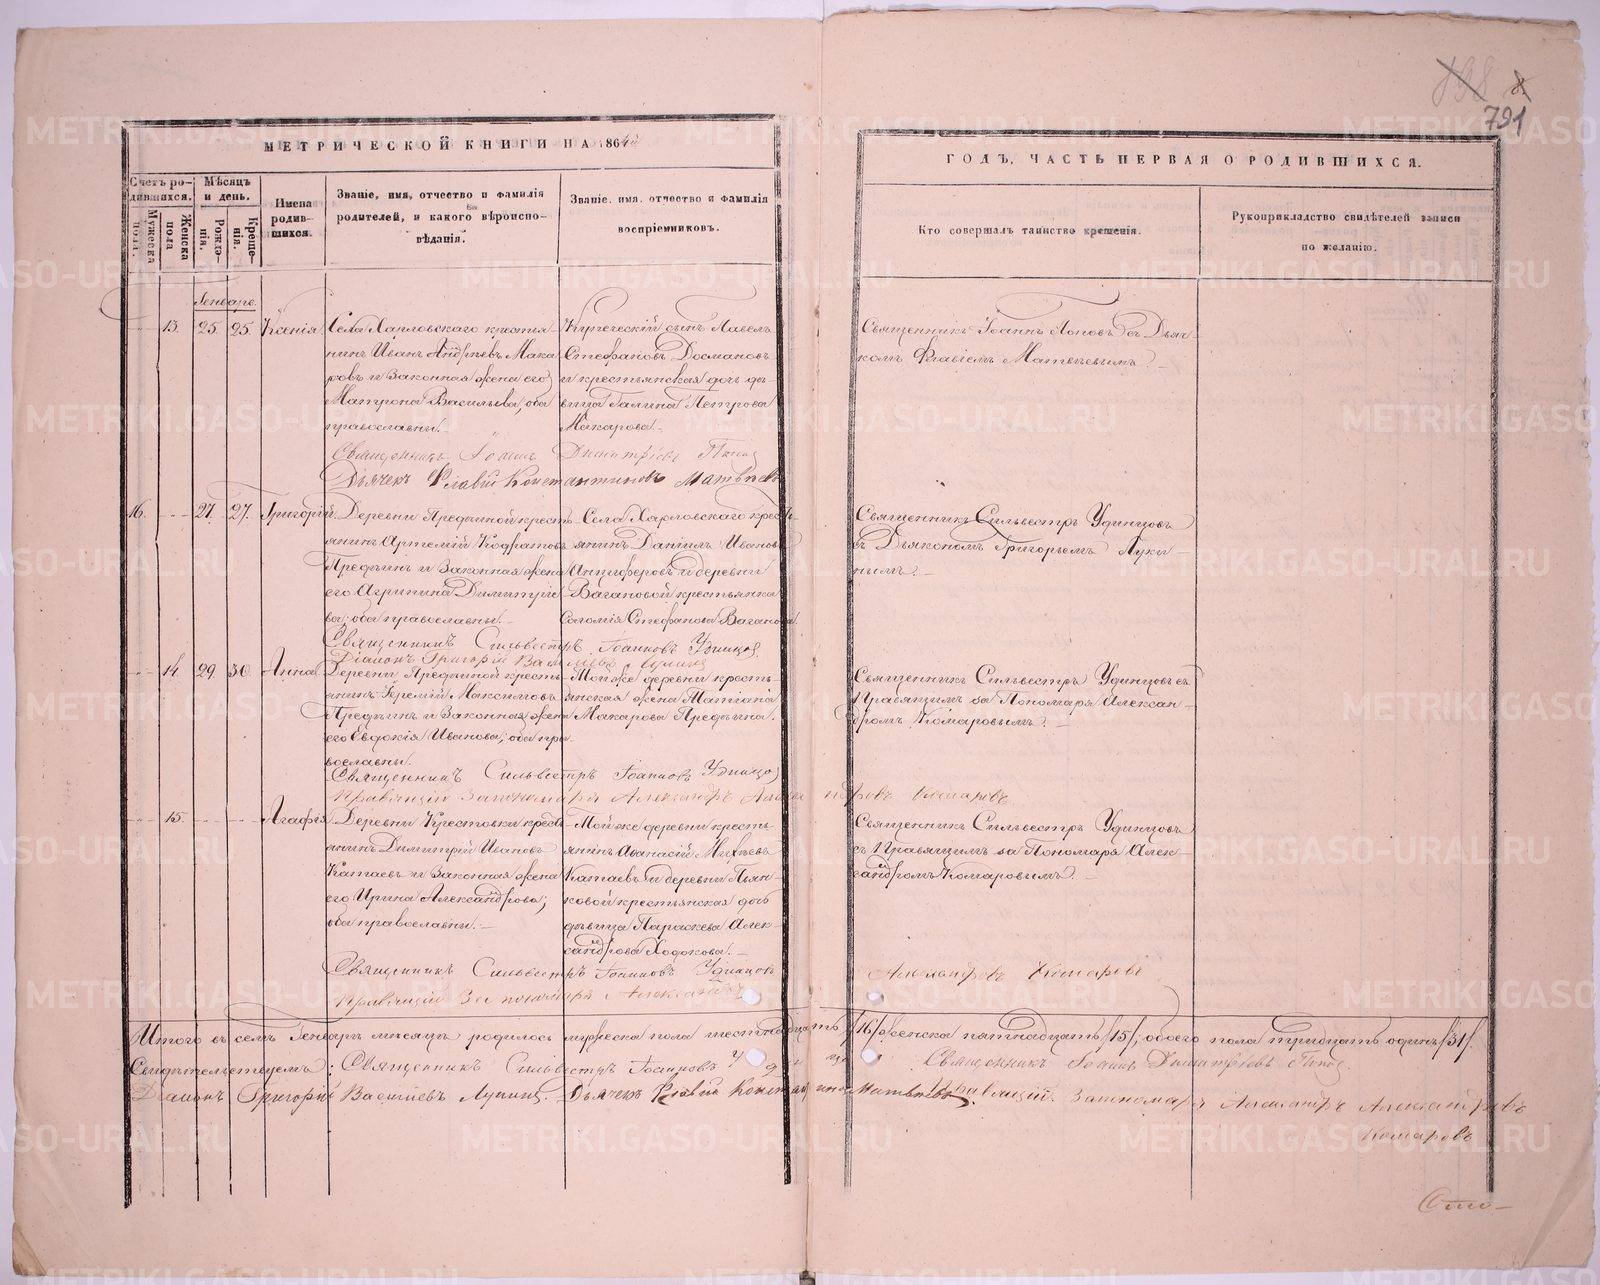 791
МЕТРИЧЕСКОЙ КНИГИ НА 1864й
ГОДЪ, ЧАСТЬ ПЕРВАЯ О РОДИВШИХСЯ.
Счетъ родившихся.
Мужеска пола.
Женска пола
Мѣсяцъ и день.
Рожденія.
Крещенія.
Имена родившихся.
Званіе, имя, отчество и фамилія
родителей, и какого вѣроиспо-
вѣданія.
Званіе, имя, отчество и фамилія
воспріемниковъ.
Кто совершалъ таинство крещенія.
Рукоприкладство свидѣтелей записи
по желанію.
Генварь.
15. 25. 25. Ксенія
Села Харловскаго крестья-
нинъ Иванъ Андреевъ Мака
ровъ и законная жена его
Матрона Васильева, оба
православны.
Купеческій сынъ Павелъ
Стефановъ Досмановъ
и крестьянская дочь дѣ-
вица Галина Петрова
Макарова.
Священникъ Іоаннъ Поповъ съ Дьяч-
комъ Флавіемъ Матвѣевымъ.
Священникъ Іоаннъ Димитріевъ Поповъ
Дьячекъ Флавій Константиновъ Матвѣевъ
16. 27. 27. Григорій
Деревни Предѣиной кресть-
янинъ Артемій Кодратовъ
Предѣинъ и законная жена
его Агрипина Димитріе-
ва, оба православны.
Села Харловскаго кресть-
янинъ Даніилъ Ивановъ
Анциферовъ и деревни
Вагановой крестьянка
Соломія Стефанова Ваганова.
Священникъ Сильвестръ Удинцовъ
съ Дьякономъ Григорьемъ Луки-
нымъ.
Священникъ Сильвестръ Іоанновъ Удинцовъ
Діаконъ Григорій Васильевъ Лукинъ
14. 29. 30. Анна
Деревни Предѣиной кресть-
янинъ Іеремій Максимовъ
Предѣинъ и законная жена
его Евдокія Иванова, оба пра-
вославны.
Той же деревни кресть-
янская жена Татіана
Макарова Предѣина.
Священникъ Сильвестръ Удинцовъ съ
Правящимъ за Пономаря Алексан-
дромъ Комаровымъ.
Священникъ Сильвестръ Іоанновъ Удинцовъ
Правящій за пономаря Александръ Александровъ Комаровъ
15. Агафія
Деревни Крестовки кресть-
янинъ Димитрій Ивановъ
Катаевъ и законная жена
его Ирина Александрова;
оба православны.
Той же деревни кресть-
янинъ Аѳанасій Михѣевъ
Катаевъ и деревни Пьян-
ковой крестьянская дочь
дѣвица Параскева Алек-
сандрова Ходокова.
Священникъ Сильвестръ Удинцовъ
съ Правящимъ за Пономаря Алек-
сандромъ Комаровымъ.
Священникъ Сильвестръ Іоанновъ Удинцовъ
Правящій за пономаря Александръ Александровъ Комаровъ
Итого въ семъ Генварѣ мѣсяцѣ родилось мужеска пола шестнадцать /16/, женска пятнадцать /15/, обоего пола тридцать одинъ /31/.
Свидѣтельствуемъ: Священникъ Сильвестръ Іоанновъ Удинцовъ Священникъ Іоаннъ Димитріевъ Поповъ.
Діаконъ Григорій Васильевъ Лукинъ. Дьячекъ Флавій Константиновъ Матвѣевъ Правящій за пономаря Александръ Александровъ
Комаровъ
METRIKI.GASO-URAL.RU